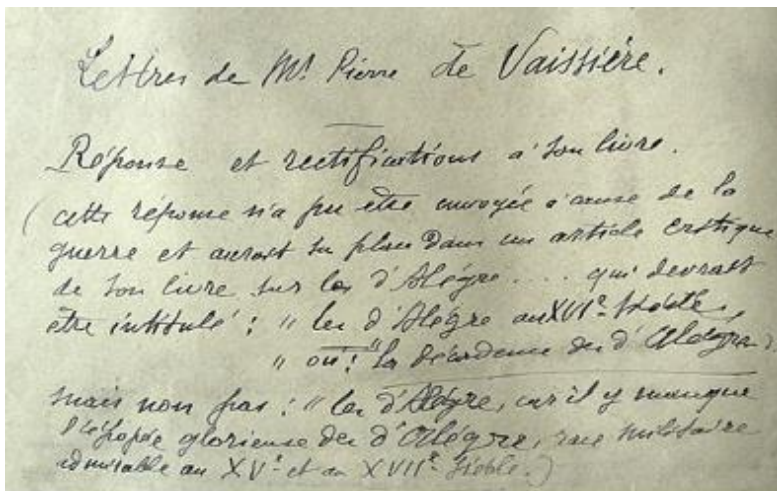 Lettres de Mr Pierre de Vaissière.
Réponse et rectifications à son livre.
(cette réponse n'a pu être envoyée à cause de la
guerre et aurait sa place dans un article critique
de son livre sur les d'Alègre.... qui devrait
être intitulé : "les d'Alègre au XVIe siècle,
" ou : "la décadence des d'Alègre,
mais non pas : "les d'Alègre, car il y manque
l'épopée glorieuse des d'Alègre, race militaire
admirable au XVe et au XVIIe siècle.)